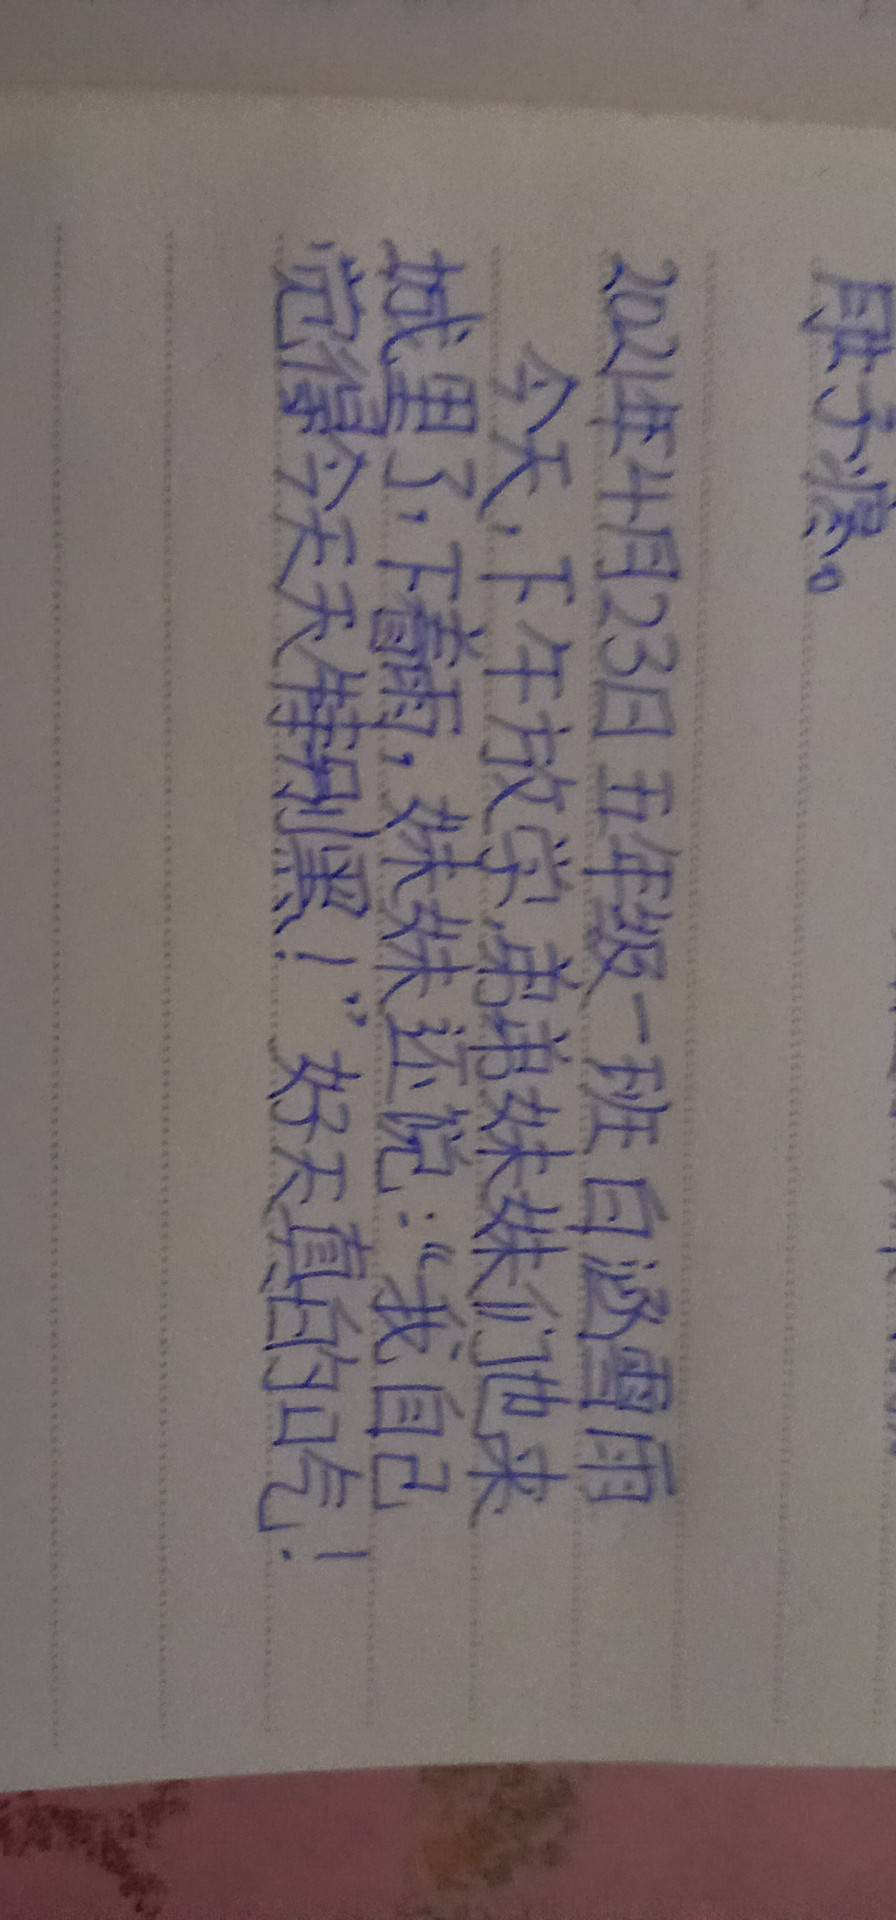 肚子疼。
2021年4月23日 五年级一班 白涵雪雨
今天，下午放学，弟弟妹妹们他来
城里了，下霾雨，妹妹还说：“我自己
觉得今天天特别黑！”好天真的口气！